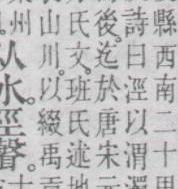 縣西南二十
詩曰涇以渭
後。迄於唐宋
氏文。班氏述地
山川。以綴禹
州。从水。巠聲。